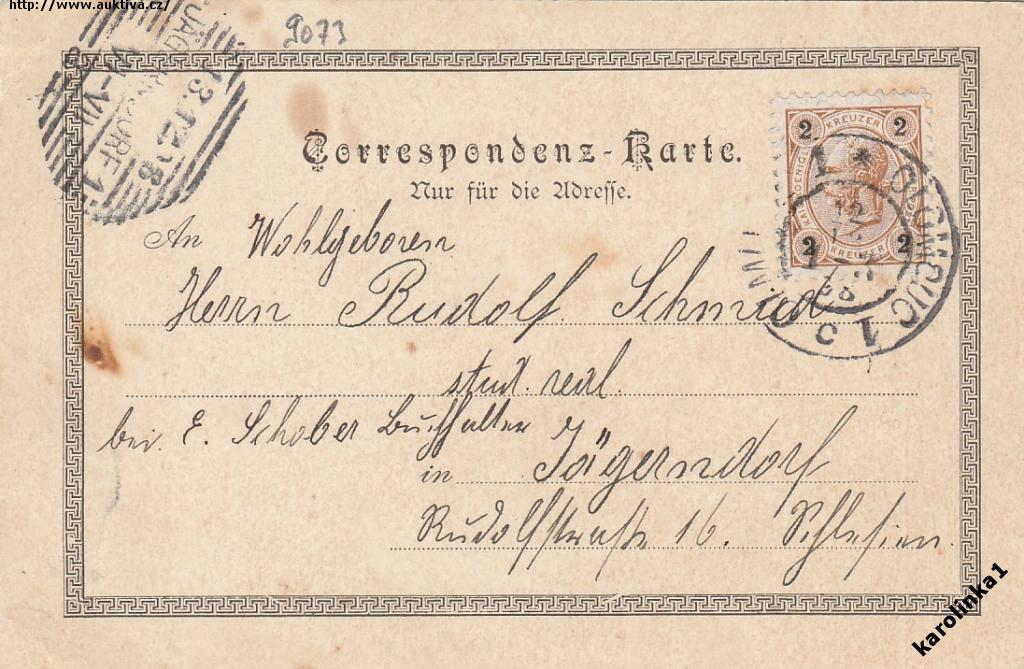 http://www.auktiva.cz/
9073
JÄGERNDORF 1
13.12.98
VI-VII
Correspondenz-Karte.
Nur für die Adresse.
2 KREUZER 2
2 KREUZER 2
OLMÜTZ 1
OLOMOUC 1
12
98
An Wohlgeboren
Herrn Rudolf Schmid
stud. real.
bei E. Schober Buchhalter
in Jägerndorf
Rudolfstraße 16. Schlesien.
karolinka1